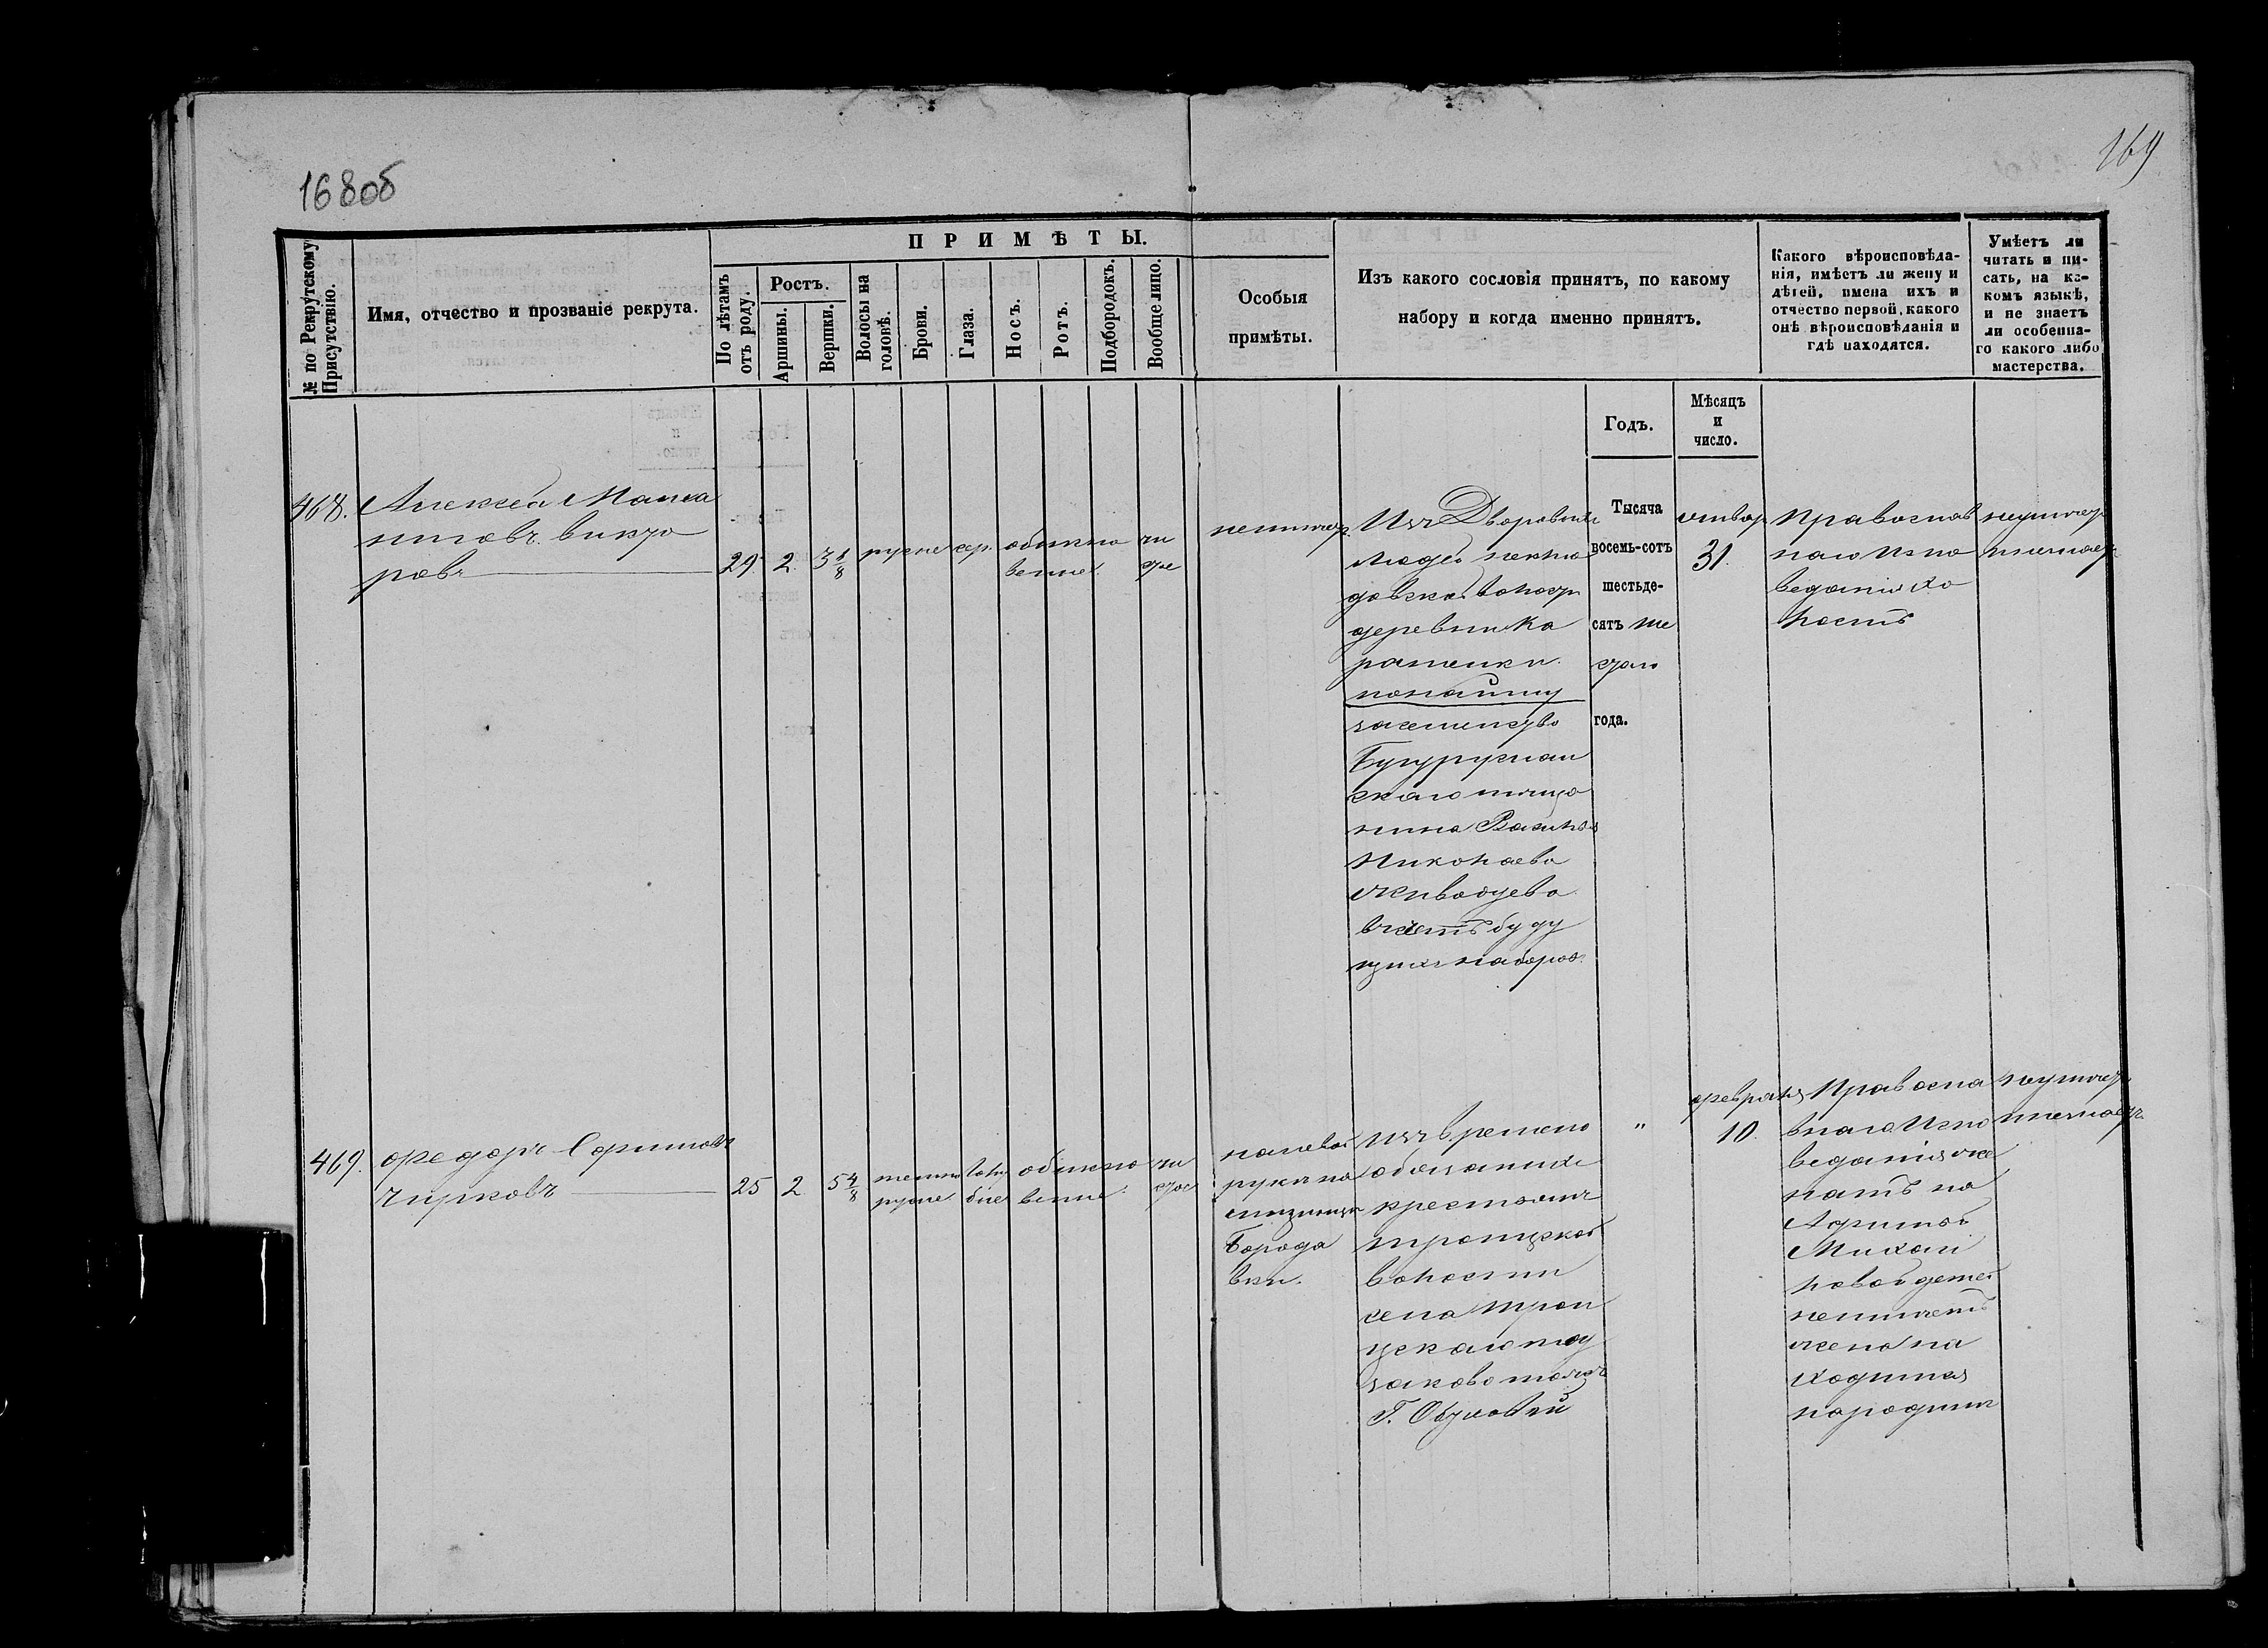 168об
169
№ по Рекрутскому
Присутствію.
Имя, отчество и прозваніе рекрута.
ПРИМѢТЫ.
По лѣтамъ
отъ роду.
Ростъ.
Аршины.
Вершки.
Волосы на
головѣ.
Брови.
Глаза.
Носъ.
Ротъ.
Подбородокъ.
Вообще лицо.
Особыя
примѣты.
Изъ какого сословія принятъ, по какому
набору и когда именно принятъ.
Какого вѣроисповѣда-
нія, имѣетъ ли жену и
дѣтей, имена ихъ и
отчество первой, какого
онѣ вѣроисповѣданія и
гдѣ находятся.
Умѣетъ ли
читать и пи-
сать, на ка-
комъ языкѣ,
и не знаетъ
ли особенна-
го какого либо
мастерства.
Годъ.
Мѣсяцъ
и
число.
468.
Алексей
ровъ
29.
2.
3
русые
сер.
обыкно
венные
чи
стое
Изъ Дворовыхъ
людей
деревни Ка
понайму
засемейство
Бугуруслан
скаго меща
нина Василья
Николаева
всчетъ буду
щихъ наборов.
Тысяча
восемь-сотъ
шестьде-
сятъ ше
стаго
года.
31.
Православ
наго Испо
веданія хо
лостъ
469.
Федоръ
Чирковъ
25
2
5 4/8
темно
русые
голу
бые
обыкно
венные
чи
стое
налевой
руке на
Борода
вки.
изъ времено
обязаныхъ
крестьянъ
троицкой
волости
села Трои
цкаго
"
февраля
10.
Правосла
внаго Испо
веданія же
натъ на
Михай
ловой детей
неимеетъ
жена на
ходится
народине